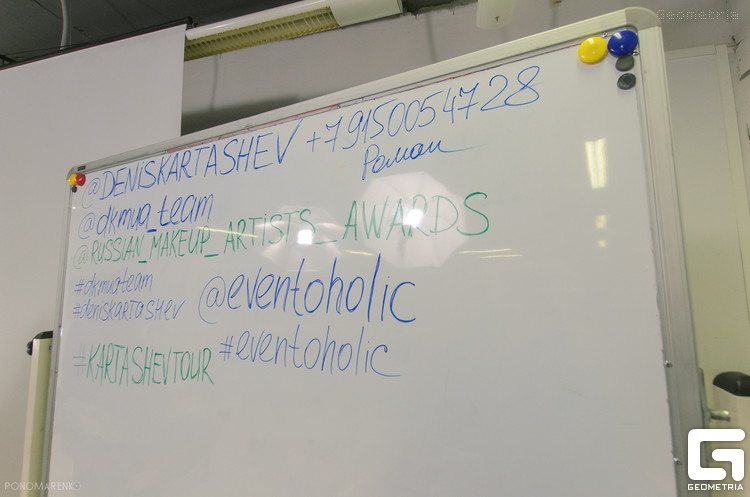 Geometria
@DENISKARTASHEV +79150054728
Роман
@dkmua_team
@RUSSIAN_MAKEUP_ARTISTS_AWARDS
#dkmuateam
#deniskartashev @eventoholic
#KARTASHEVTOUR #eventoholic
PONOMARENKO
GEOMETRIA